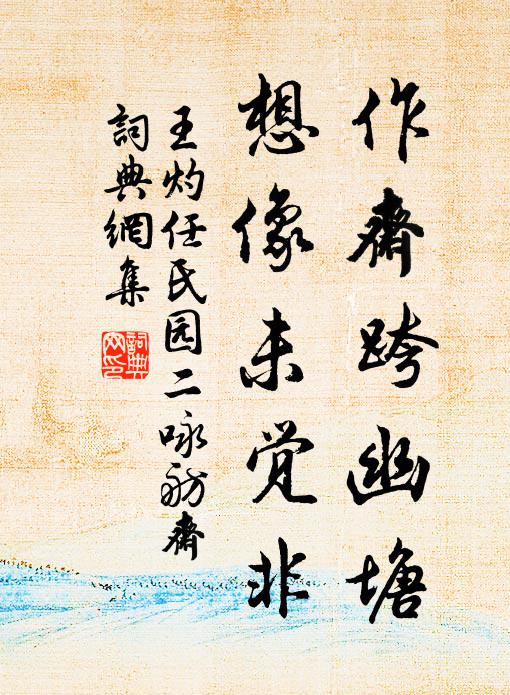 作齋跨幽塘
想像未觉非
王灼任氏园二咏舫齋
詞典網集
詞典